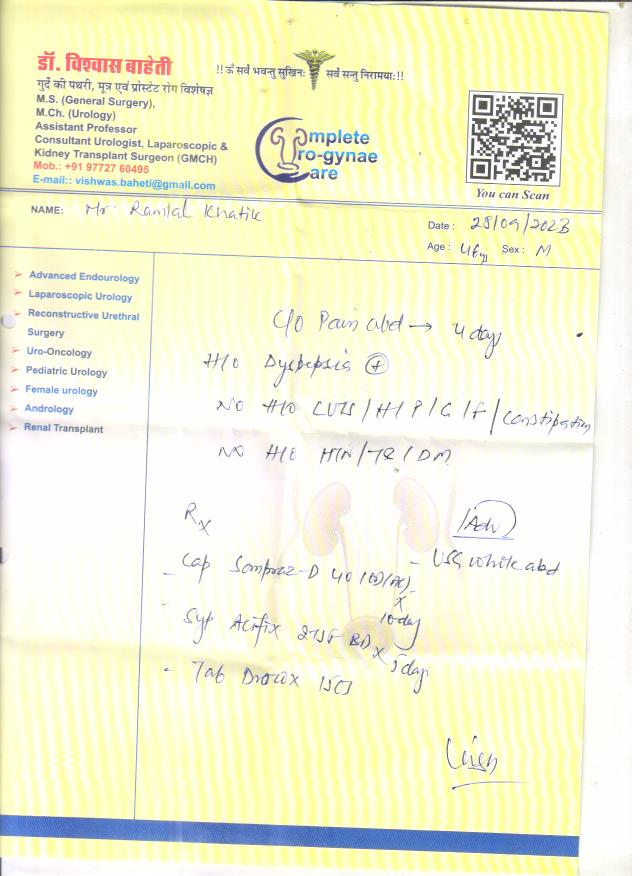 डॉ. विश्वास बाहेती
गुर्दे की पथरी, मूत्र एवं प्रोस्टेट रोग विशेषज्ञ
M.S. (General Surgery),
M.Ch. (Urology)
Assistant Professor
Consultant Urologist, Laparoscopic &
Kidney Transplant Surgeon (GMCH)
Mob.: +91 97727 60495
E-mail:: vishwas.baheti@gmail.com
!! ॐ सर्वे भवन्तु सुखिनः सर्वे सन्तु निरामयाः !!
Complete
Uro-gynae
Care
You can Scan
NAME: Mr. Ramlal Khatik
Date: 28/09/2023
Age: 46y Sex: M
Advanced Endourology
Laparoscopic Urology
Reconstructive Urethral
Surgery
Uro-Oncology
Pediatric Urology
Female urology
Andrology
Renal Transplant
C/O Pain abd → 4 days
H/O Dyspepsia +
NO H/O LUTS/H/P/G/F/Constipation
NO H/O HTN/TB/DM
Rx
Adv
- Cap Sompraz-D 40 1OD(AC)
x 10day
- USG whole abd
- Syp Acifix 2TSF BD
x 5day
- Tab Drotax